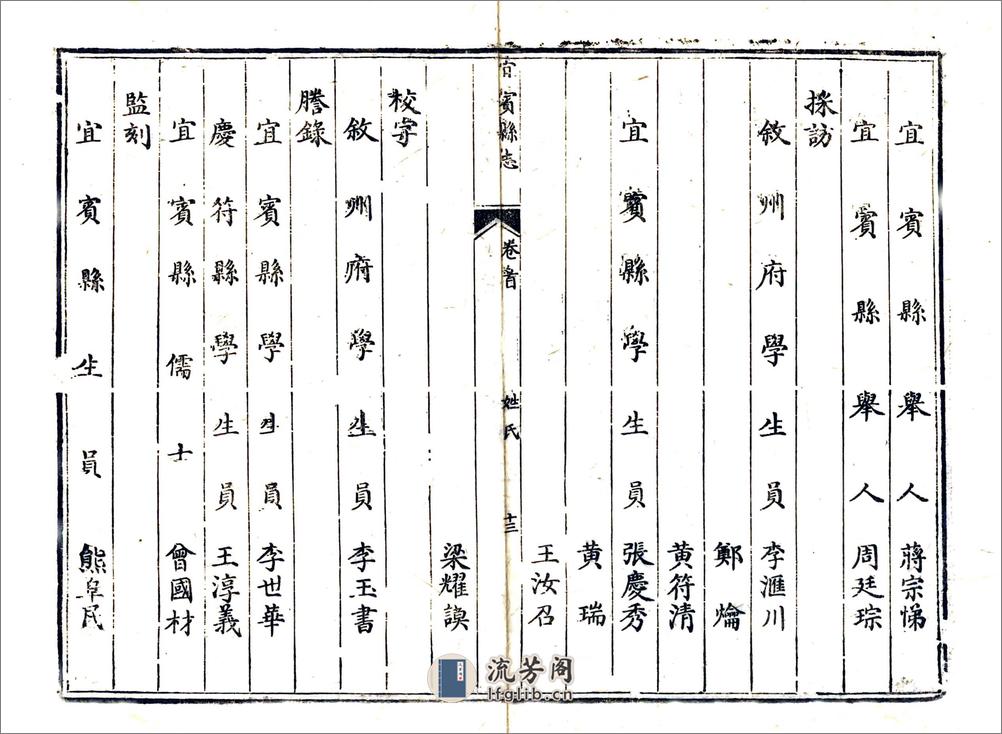 宜賓縣舉人 蔣宗悌
宜賓縣舉人 周廷琮
採訪
敘州府學生員 李滙川
鄭爚
黃符清
宜賓縣學生員 張慶秀
黃瑞
王汝召
宜賓縣志 卷首 姓氏 十三
梁耀謨
校字
敘州府學生員 李玉書
謄錄
宜賓縣學生員 李世華
慶符縣學生員 王淳義
宜賓縣儒士 曾國材
監刻
宜賓縣生員 熊阜民
流芳阁
lfglib.cn